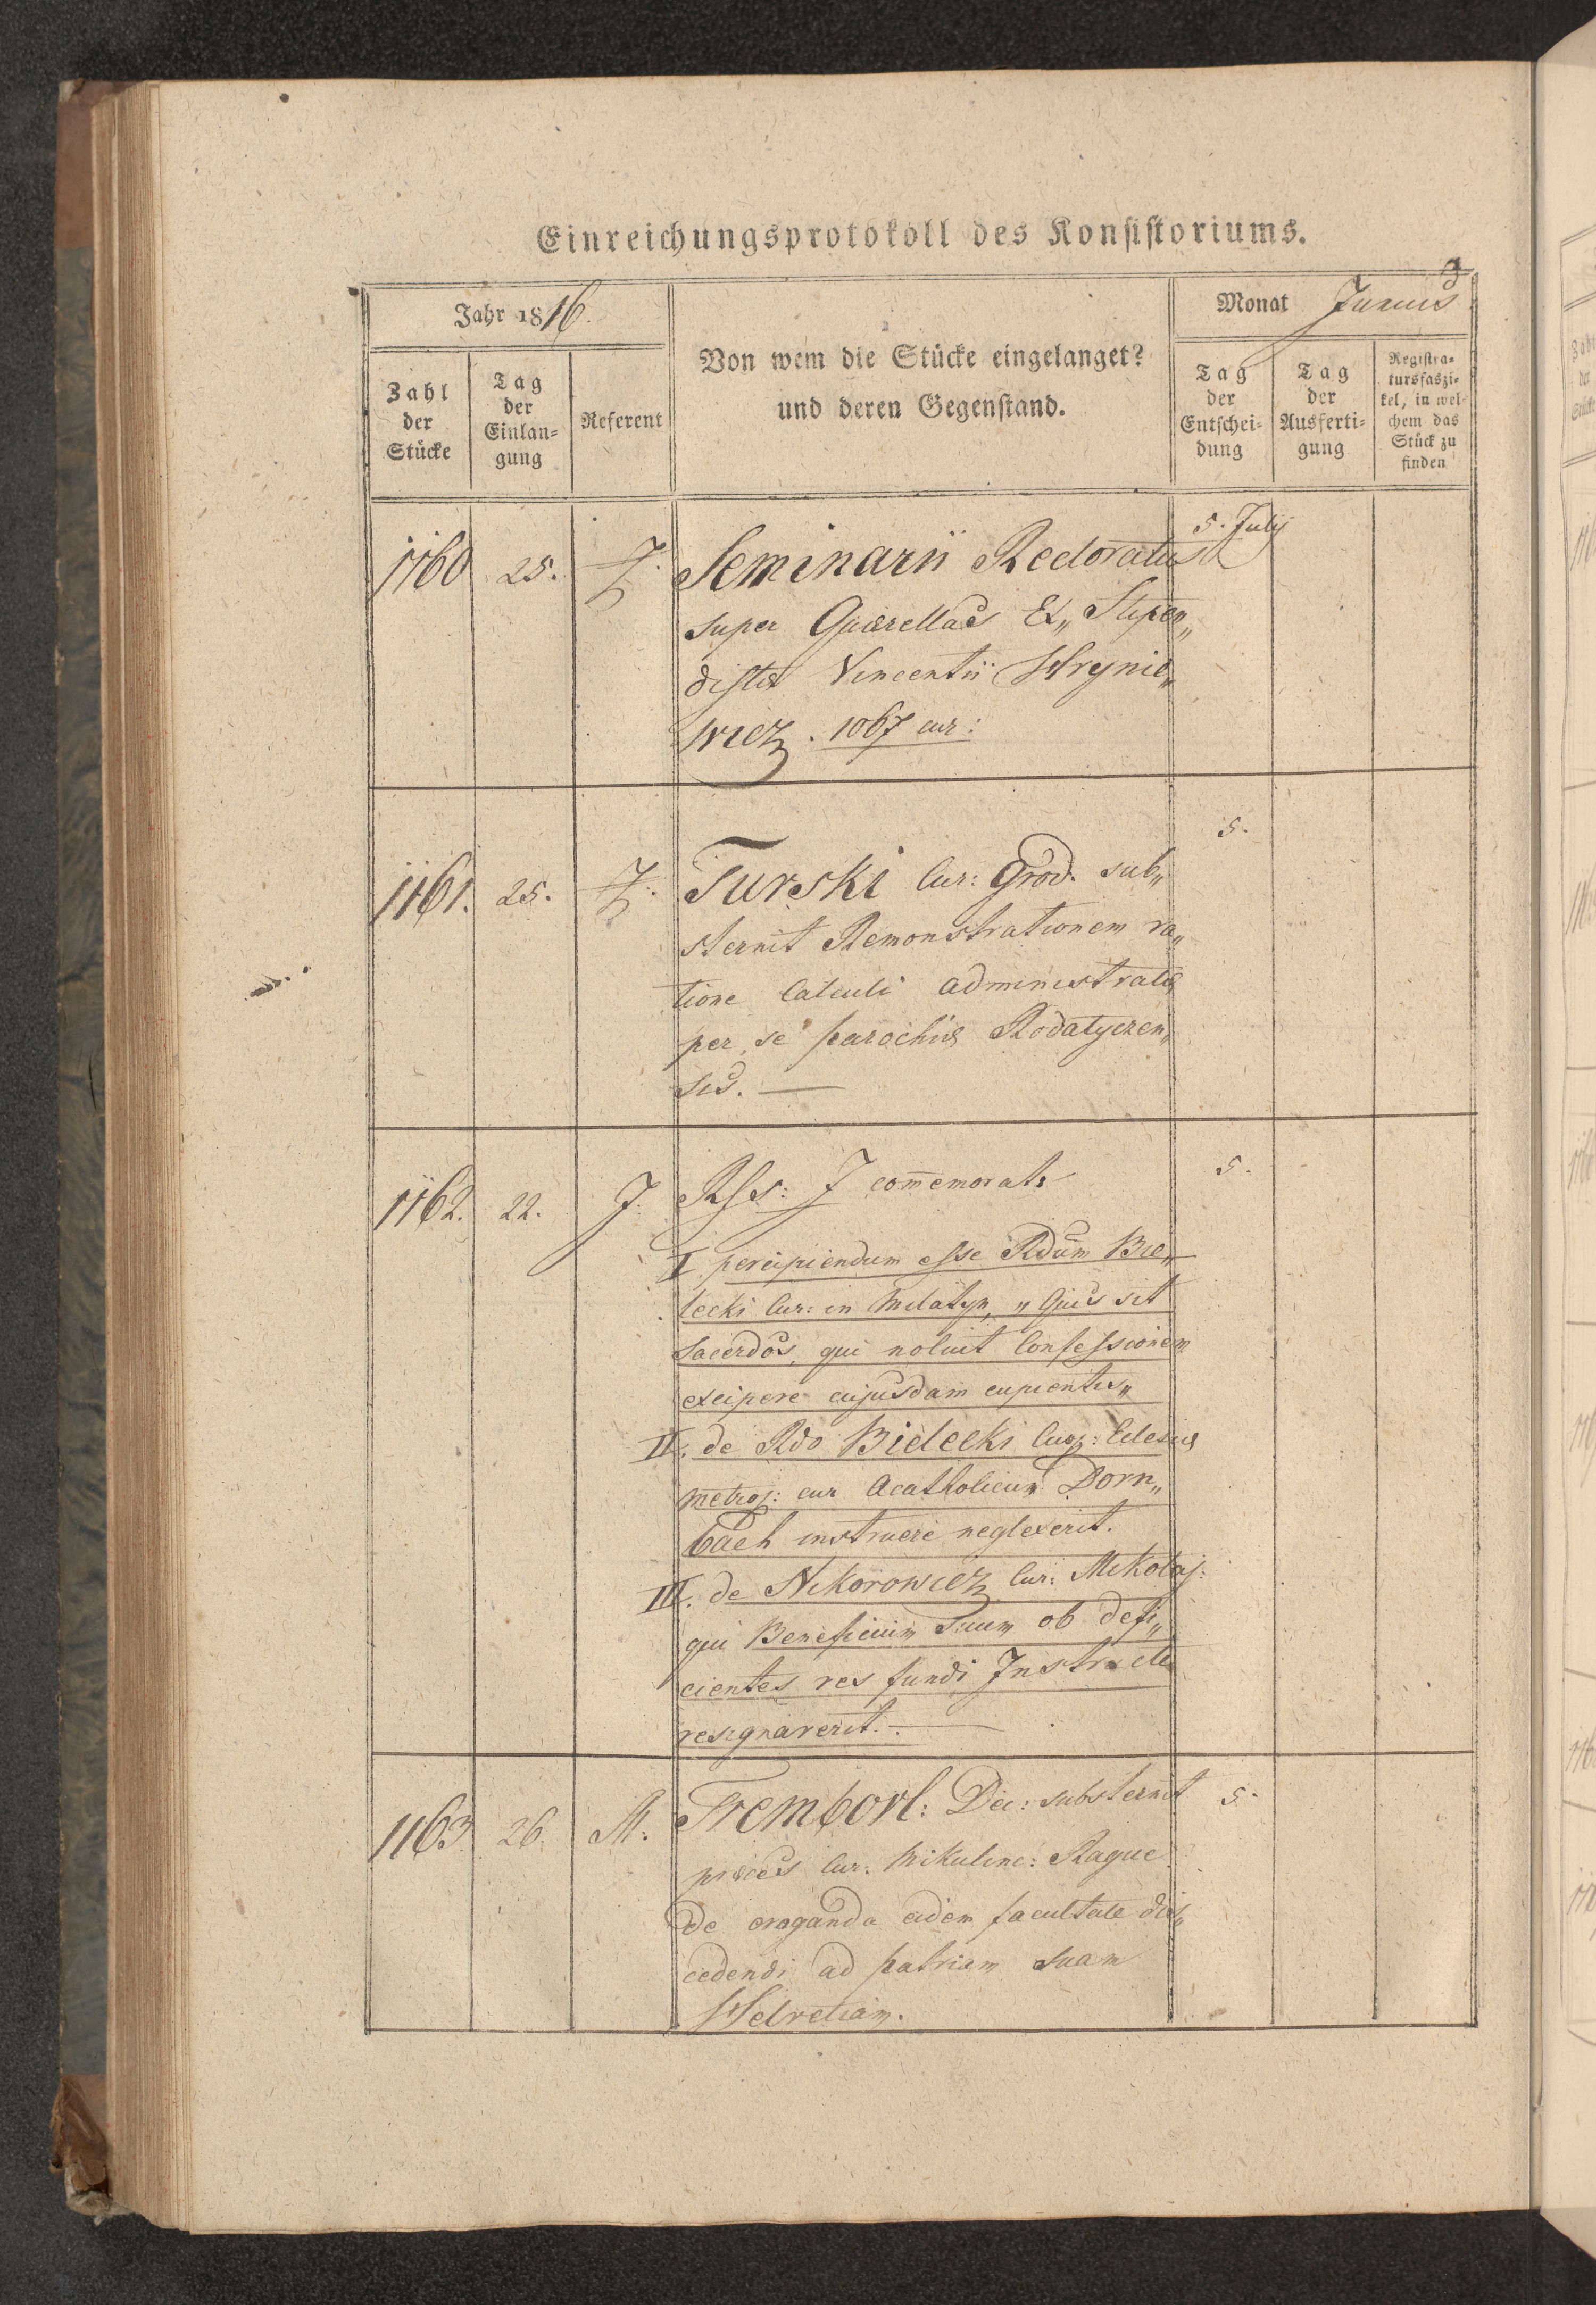 Einreichungsprotokoll des Konsistoriums.
Jahr 1816.
Von wem die Stücke eingelanget?
und deren Gegenstand.
Monat Junius
Zahl
der
Stücke
Tag
der
Einlan=
gung
Referent
Tag
der
Entschei=
dung
Tag
der
Ausferti=
gung
Registra=
tursfaszi=
kel, in wel=
chem das
Stück zu
finden
1160 25. Z. Seminarii Rectoratus 5. July
super Quærellas Ex„ Stipen„
distæ Vincentii Hrynie„
wicz. 1067 cur:
1161. 25. Z. Turski Cur: Grod. sub„ 5.
sternit Remonstrationem ra„
tione Calculi administratæ
per se parochiæ Rodatyczen„
sis. —
1162. 22. J. Rſs: J com̄emorat:
5.
I percipiendum eſse Rdum Bie„
lecki Cur: in Milatyn, „Quis sit
Sacerdos, qui noluit Confeſsionem
excipere cujusdam cupientis„
II. de Rdo Bielecki Coop: Eclesiæ
metrop: cur Acatholicum Dorn„
bach instruere neglexerit.
III. de Nikorowicz Cur: Mikołaj:
qui Beneficium Suum ob defi„
cientes res fundi Instructi
resignaverit. —
1163 26. M. Trembovl: Dec: substernit 5.
preces Cur: Mikulinc: Rague
de eroganda eidem facultate dis„
cedendi ad patriam suam
Helvetiam.